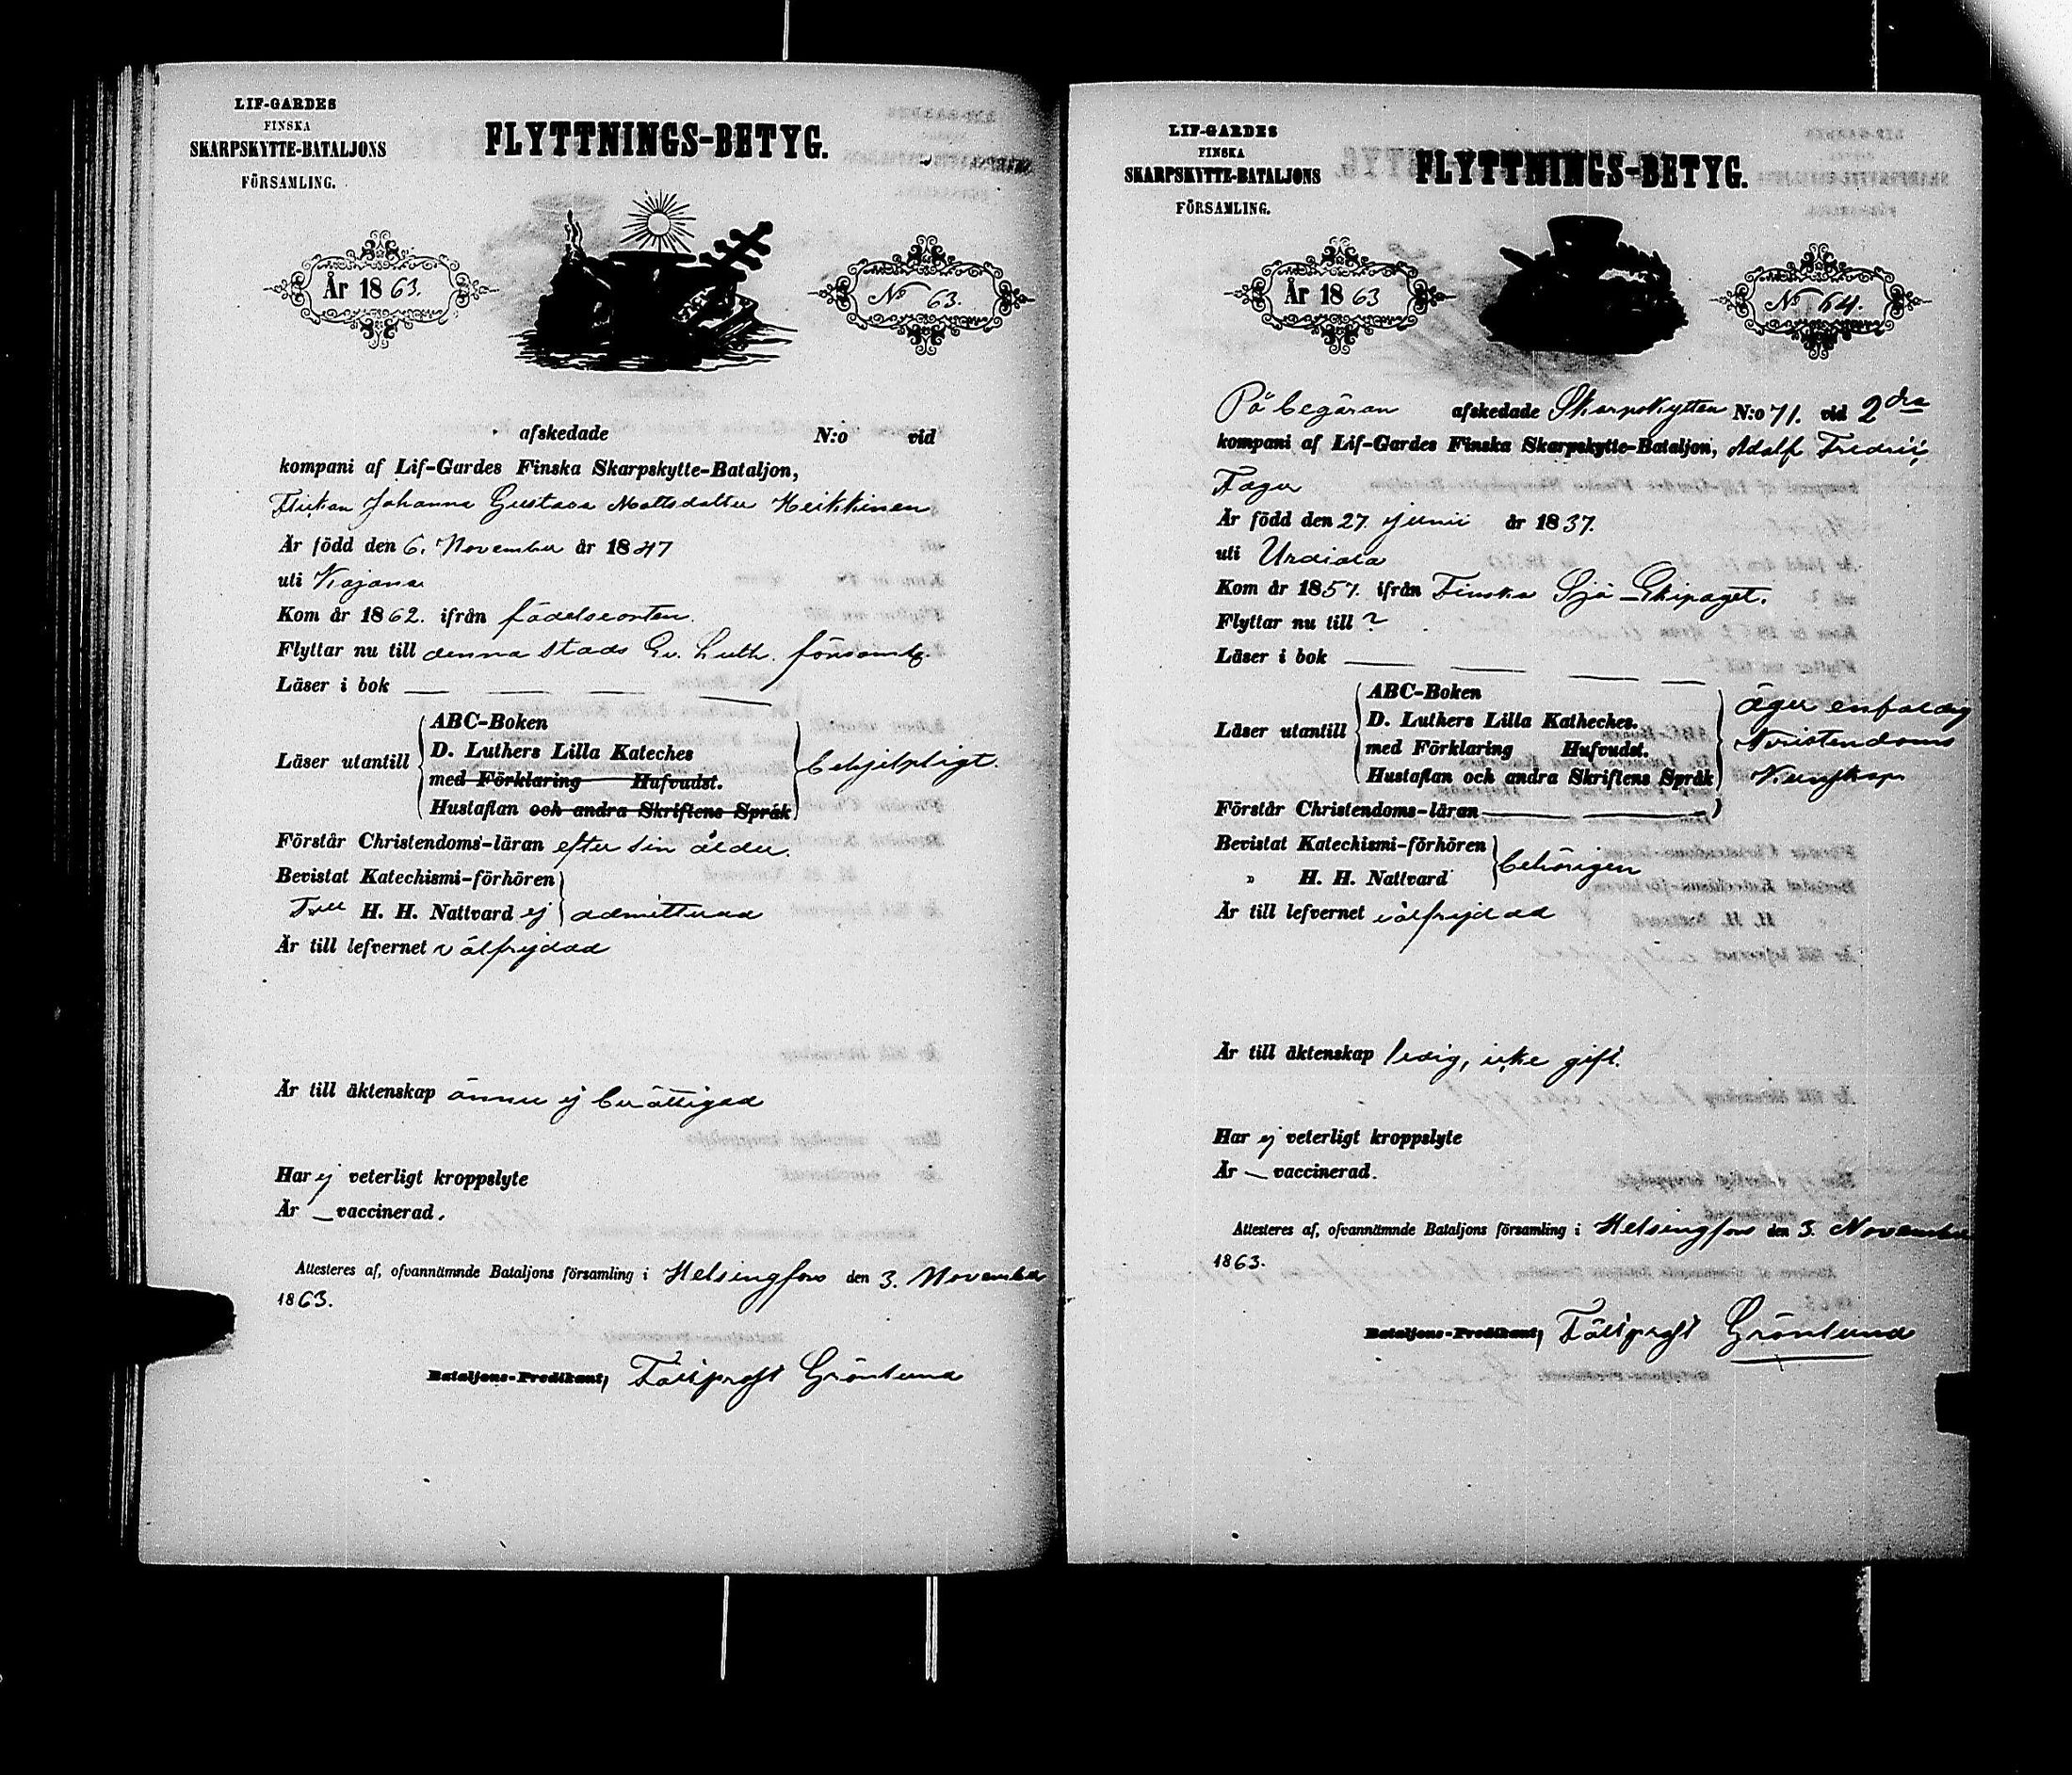 LIF-GARDES
FINSKA
SKARPSKYTTE-BATALJONS
FÖRSAMLING.
FLYTTNINGS-BETYG.
År 1863.
No 63.
afskedade N:o vid
kompani af Lif-Gardes Finska Skarpskytte-Bataljon,
Flickan Johanna Gustava Mattsdotter Heikkinen
Är född den 6. November år 1847
uti Kajana
Kom år 1862. ifrån födelseorten.
Flyttar nu till denna stads Ev. Luth. församlg.
Läser i bok — — — —
Läser utantill
ABC-Boken
D. Luthers Lilla Kateches
med Förklaring Hufvudst.
Hustaflan och andra Skriftens Språk
behjelpligt.
Förstår Christendoms-läran efter sin ålder.
Bevistat Katechismi-förhören
Till H. H. Nattvard ej admitterad
Är till lefvernet välfrejdad
Är till äktenskap ännu ej berättigad
Har ej veterligt kroppslyte
Är — vaccinerad.
Attesteres af, ofvannämnde Bataljons församling i Helsingfors den 3. November
1863.
Bataljons-Predikant, Fältprost Grönlund
LIF-GARDES
FINSKA
SKARPSKYTTE-BATALJONS
FÖRSAMLING.
FLYTTNINGS-BETYG.
År 1863
No 64.
På begäran afskedade Skarpskytten N:o 71. vid 2dra
kompani af Lif-Gardes Finska Skarpskytte-Bataljon, Adolf Fredric
Fager
Är född den 27. Junii år 1837.
uti Urdiala
Kom år 1857. ifrån Finska Sjö-Ekipaget.
Flyttar nu till ?
Läser i bok — — — —
Läser utantill
ABC-Boken
D. Luthers Lilla Katheches.
med Förklaring Hufvudst.
Hustaflan och andra Skriftens Språk
äger enfaldig
Kristendoms
Kunskap
Förstår Christendoms-läran — —
Bevistat Katechismi-förhören
" H. H. Nattvard behörigen
Är till lefvernet välfrejdad
Är till äktenskap ledig, icke gift.
Har ej veterligt kroppslyte
Är — vaccinerad.
Attesteres af, ofvannämnde Bataljons församling i Helsingfors den 3. November
1863.
Bataljons-Predikant, Fältprost Grönlund